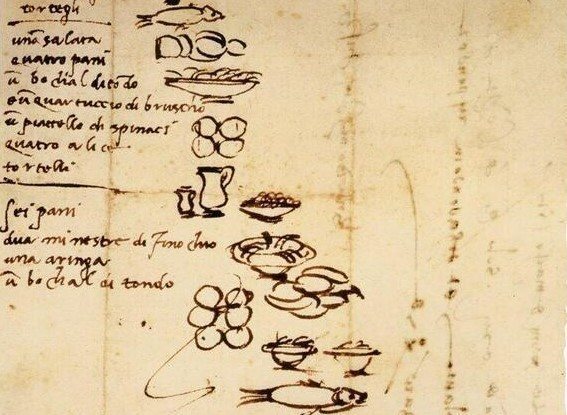 tortegli
una salata
quatro pani
ū bochal di tōdo
e ū quartuccio di bruscho
ū piattello di spinaci
quatro alice
tortelli
sei pani
dua minestre di finochio
una aringa
ū bochal di tondo